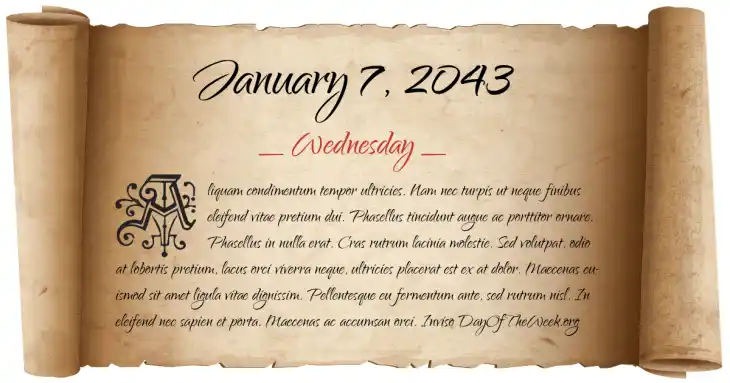 January 7, 2043
_ Wednesday _
Aliquam condimentum tempor ultricies. Nam nec turpis ut neque finibus
eleifend vitae pretium dui. Phasellus tincidunt augue ac porttitor ornare.
Phasellus in nulla erat. Cras rutrum lacinia molestie. Sed volutpat, odio
at lobortis pretium, lacus orci viverra neque, ultricies placerat est ex at dolor. Maecenas eu-
ismod sit amet ligula vitae dignissim. Pellentesque eu fermentum ante, sed rutrum nisl. In
eleifend nec sapien et porta. Maecenas ac accumsan orci. Inviso DayOfTheWeek.org